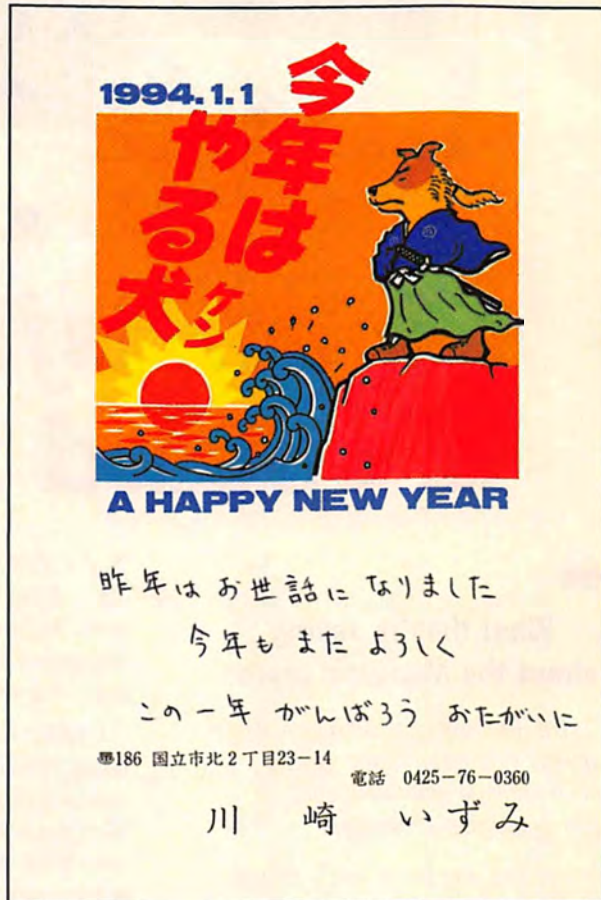 1994.1.1
今年は
やる犬
ケン
A HAPPY NEW YEAR
昨年はお世話になりました
今年もまたよろしく
この一年 がんばろう おたがいに
〠186 国立市北2丁目23-14
電話 0425-76-0360
川崎 いずみ